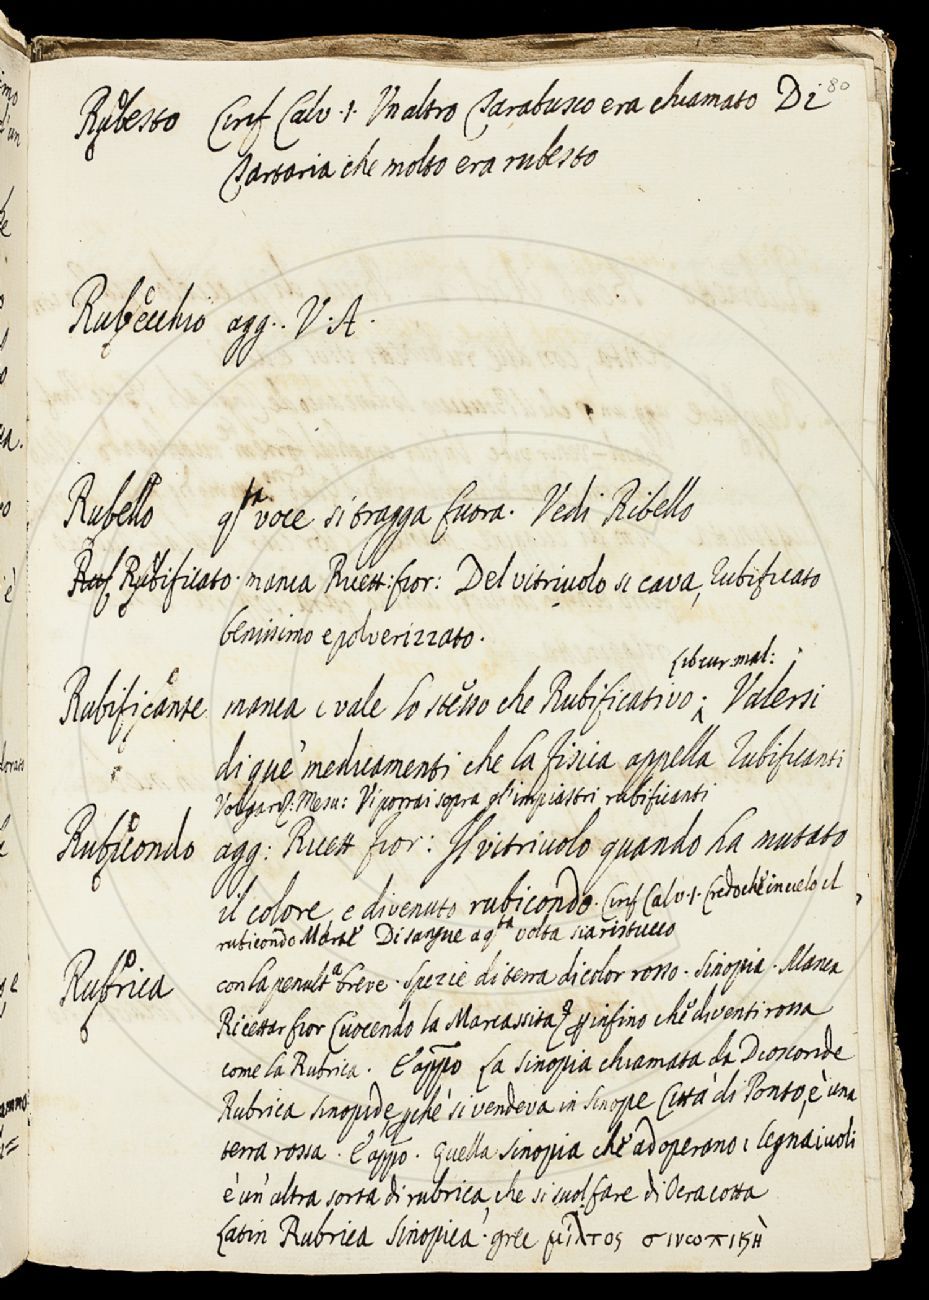 80
Rubesto Cirif Calv · 1 · Un altro Carabusco era chiamato Di
Tartaria che molto era rubesto
Rubecchio agg · V · A ·
Rubello qsta voce si tragga fuora · Vedi Ribello
Ruf Rubificato · manca Ricett: fior: Del vitriuolo si cava, rubificato
benissimo e polverizzato ·
Libr cur mal:
Rubificante manca e vale lo stesso che Rubificativo · Valersi
di que' medicamenti che la fisica appella rubificanti
Volgarz: Mesu: Vi porrai sopra gl'impiastri rubificanti
Rubicondo agg: Ricett fior: Il vitriuolo quando ha mutato
il colore e divenuto rubicondo · Cirif Calv · 1 · Credo che in cielo il
rubicondo Marte Di sangue a qsta volta sia ristucco
Rubrica con la penulta breve · spezie di terra di color rosso · Sinopia · Manca
Ricettar fior Cuocendo la Marcassita infino che diventi rossa
come la Rubrica · E appo La sinopia chiamata da Dioscoride
Rubrica sinopide, pchè si vendeva in Sinope Città di Ponto, è una
terra rossa · E appo · Quella sinopia che adoperano i legnaiuoli
è un'altra sorta di rubrica, che si suol fare di Ocra cotta
Latin Rubrica Sinopica · grec μίλτος σινωπικὴ